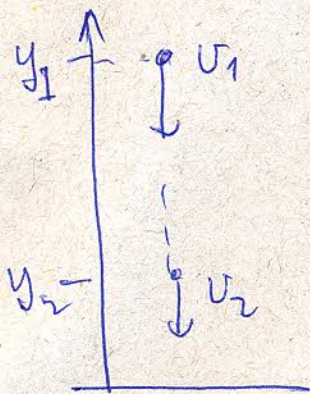 y₁ v₁
y₂ v₂